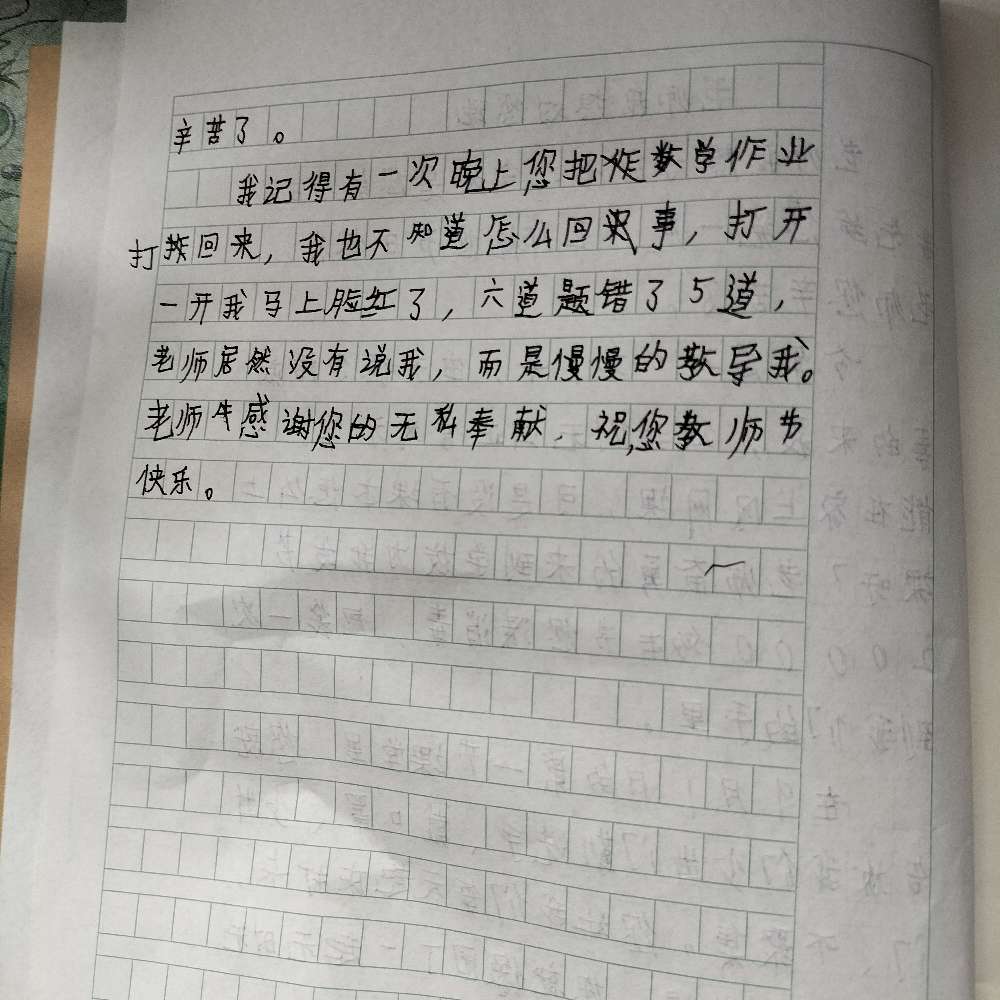 辛苦了。
我记得有一次晚上您把数学作业
打回来，我也不知道怎么回来事，打开
一开我马上脸红了，六道题错了5道，
老师居然没有说我，而是慢慢的教导我。
老师感谢您的无私奉献，祝您教师节
快乐。